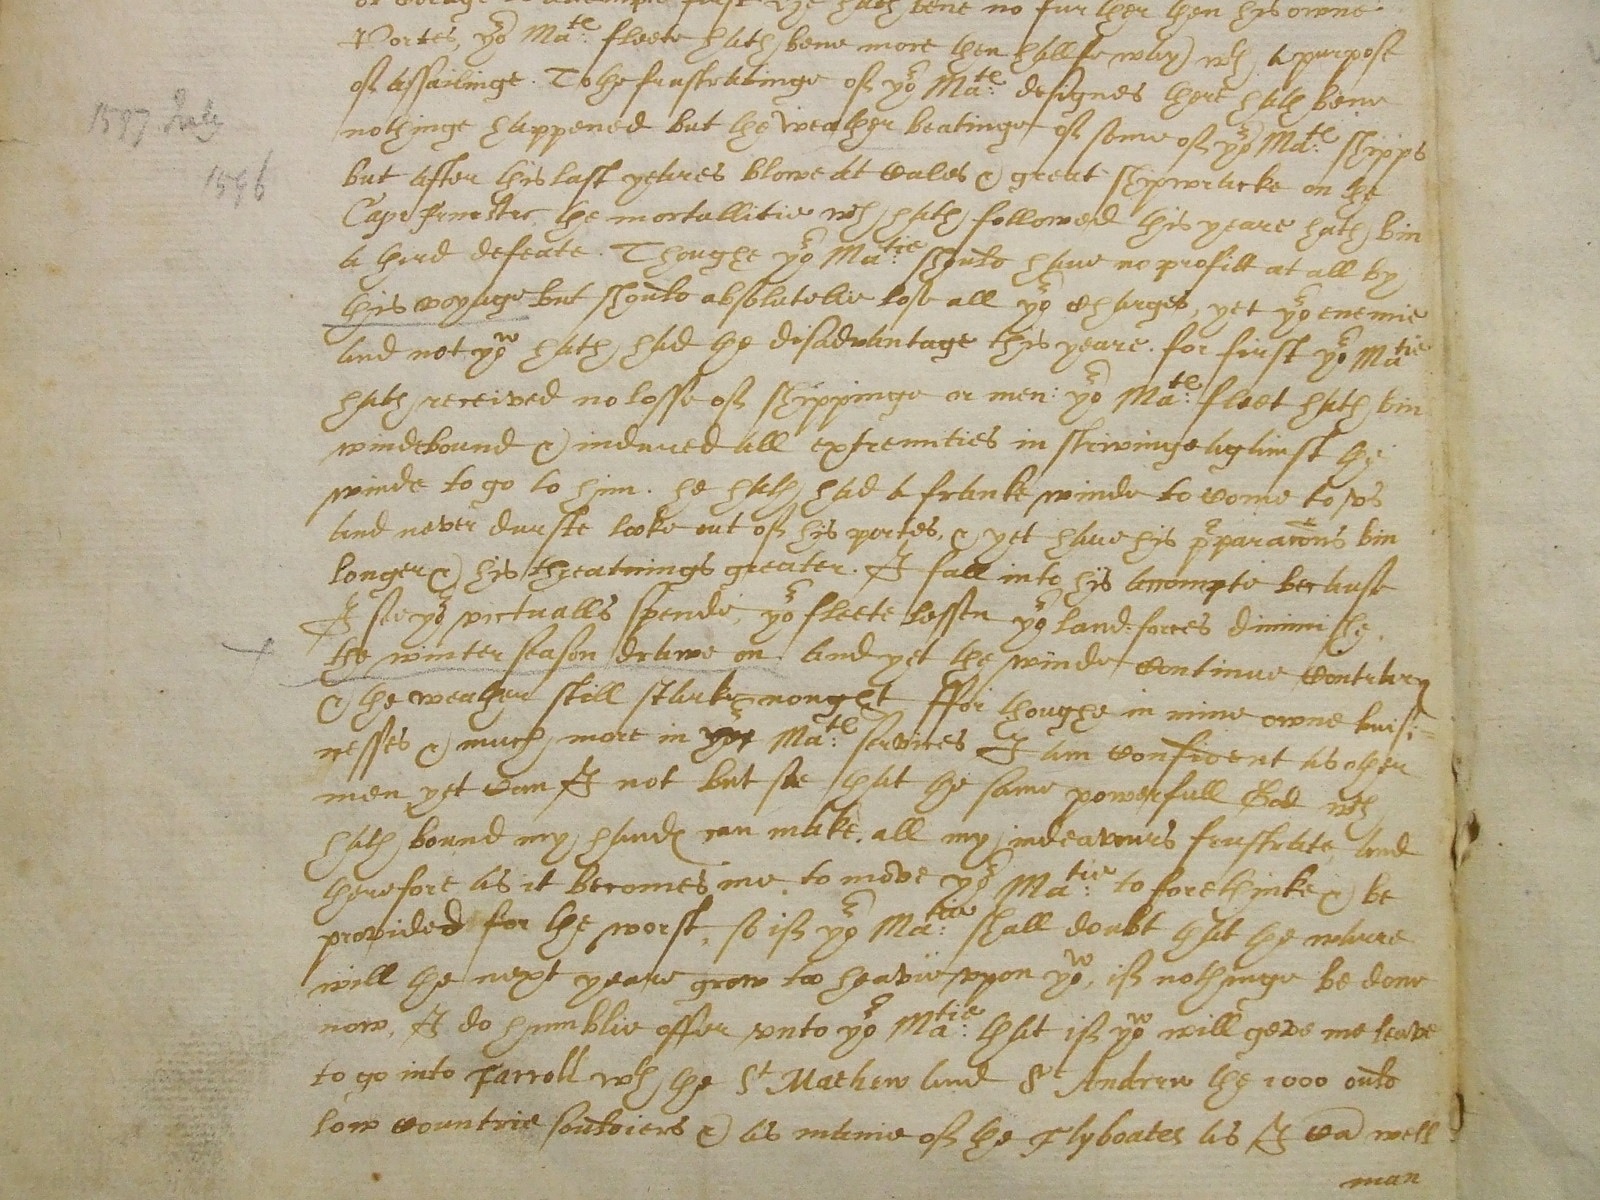 hath bene no further then his owne
Portes, yor Mate: fleete hath bene more then hallfe way wth a purpose
1597 July
of assailinge. To the frustratinge of yor Mate: designes there hath bene
nothinge happened but the weather beatinge of some of yor Mate: shipps
1596
but after his last yeares blowe at Cales & great shipwracke on the
Cape the mortallitie wch hath followed this yeare hath bin
a third defeate. Thoughe yor Matie: should have no profitt at all by
this voyage but should absolutelie lose all yor charges, yet yor enemie
and not yow hath had the disadvantage this yeare. for first yor Matie
hath received no losse of shippinge or men: yor Mate: fleet hath bin
windebound & indured all extremities in strivinge against the
winde to go to him. he hath had a franke winde to come to vs
and never durste looke out of his portes, & yet have his pparacons bin
longer & his threatnings greater. I fall into this accompte because
I see yor victualls spende, yor fleete lessen yor land-forces diminishe,
the winter season drawe on and yet the winde continue contrary
& the weather still starke nought ffor thoughe in mine owne busi=
nesses & much more in yor Mate: services I am confident as other
men yet can I not but see that the same powerfull God wch
hath bound my handes can make all my indeavours frustrate, and
therefore as it becomes me to move yor Matie: to forethinke & be
provided for the worst, so if yor Matie: shall doubt that the warre
will the next yeare grow too heavie vpon yow, if nothinge be done
now, I do humblie offer vnto yor Matie: that if yow will geve me leave
to go into Farroll wth the St Mathew and St Andrew the 1000 ould
low countrie souldiers & as manie of the Flyboates as I can well
man